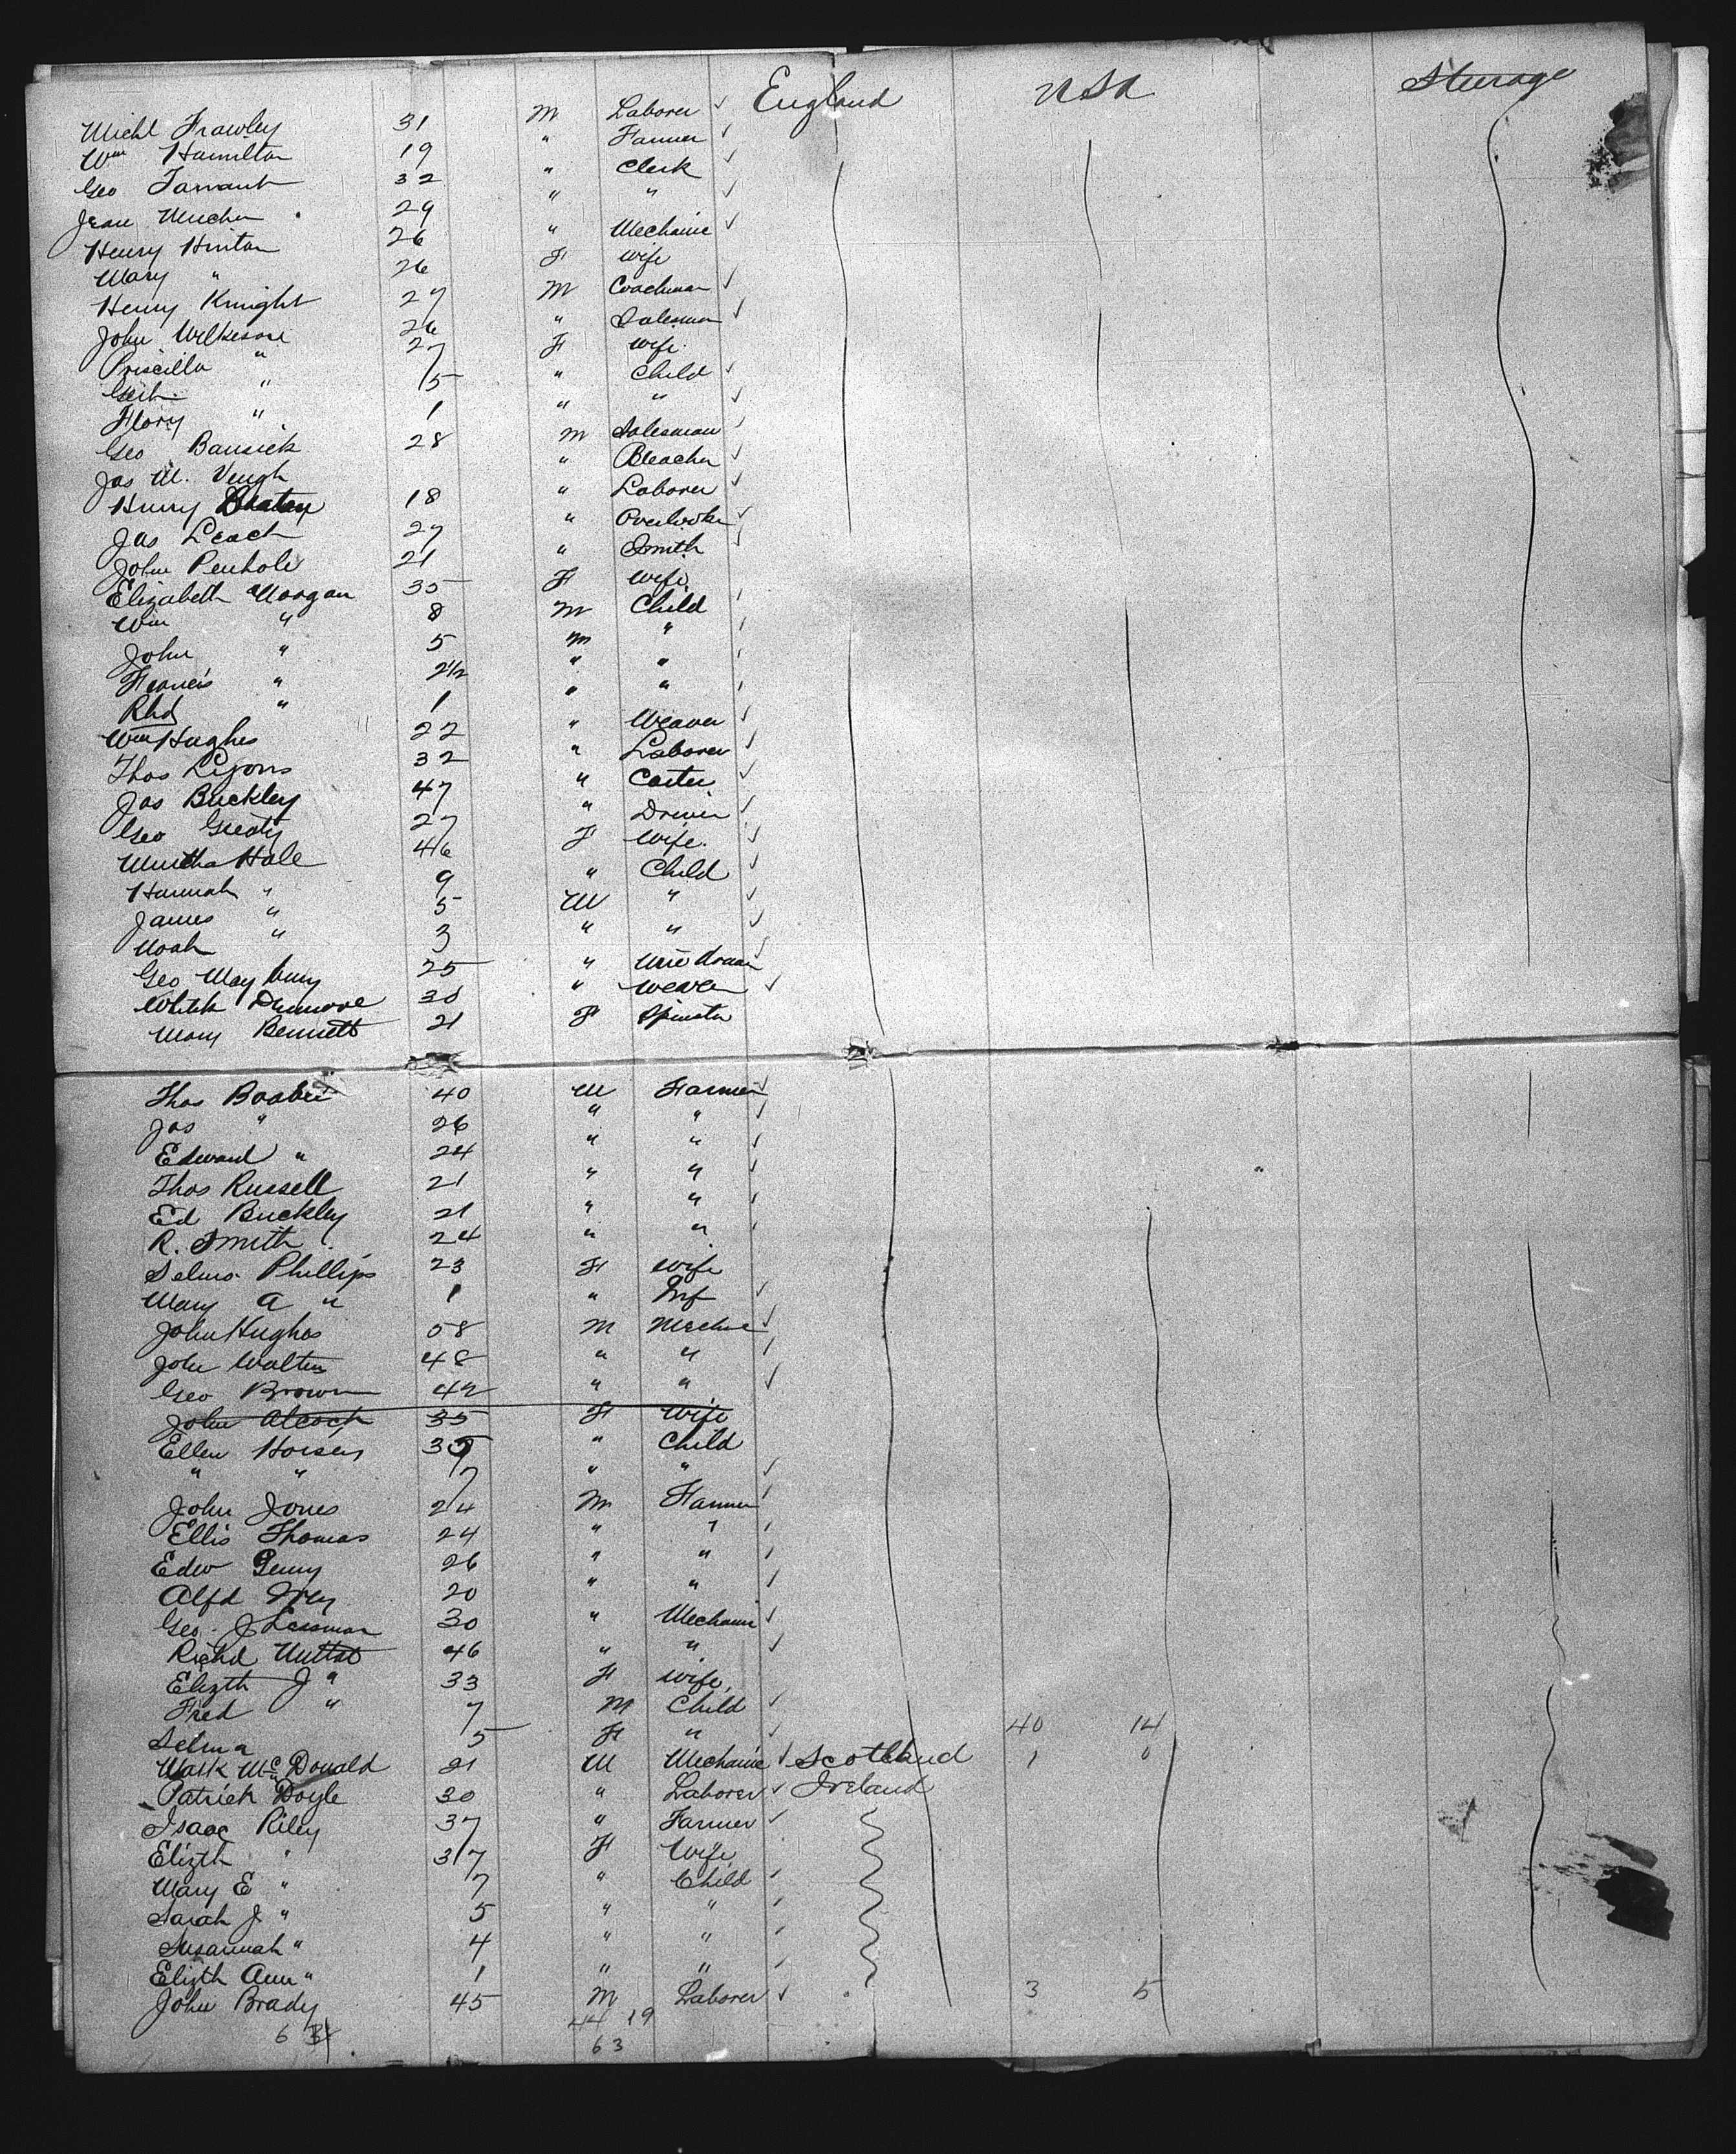 England USA Steerage
Michl Frawley 31 M Laborer ✓
Wm Hamilton 19 " Farmer ✓
Geo Tarrant 32 " Clerk ✓
Jean 29 " " ✓
Henry Hinton 26 " Mechanic ✓
Mary " 26 F Wife
Henry Knight 27 M Coachman ✓
John Wilkeson 26 " Salesman ✓
Priscilla " 27 F Wife
" 5 " Child ✓
Flory " 1 " " ✓
Geo Bansick 28 M Salesman ✓
Jas M. Veugh " Bleacher ✓
Henry 18 " Laborer ✓
Jas Leach 27 " Overlooker ✓
John Penhole 21 " Smith ✓
Elizabeth Morgan 35 F Wife
Wm " 8 M Child
John " 5 M "
Francis " 2 1/2 " "
Rhd " 1 " "
Wm Hughes 22 " Weaver ✓
Thos Lyons 32 " Laborer ✓
Jas Buckley 47 " Carter ✓
Geo 27 " Driver ✓
Hale 46 F Wife ✓
Hannah " 9 " Child ✓
James " 5 M " ✓
Noah " 3 " " ✓
Geo Maybury 25 " ✓
Dunmore 30 " Weaver ✓
Mary Bennett 21 F Spinster
Thos 40 M Farmer ✓
Jas " 26 " " ✓
Edward " 24 " " ✓
Thos Russell 21 " " ✓
Ed Buckley 21 " "
R. Smith 24 " "
Selma Phillips 23 F Wife
Mary A " 1 " Inf ✓
John Hughes 58 M ✓
John Walters 48 " "
Geo Brown 42 " " ✓
John Alcock 35 F Wife
Ellen 35 " Child
" " 7 " " ✓
John Jones 24 M Farmer
Ellis Thomas 24 " "
Edw 26 " "
Alfd 20 " "
Geo. J 30 " Mechanic ✓
Richd Nuttat 46 " " ✓
Elizth J " 33 F Wife
Fred " 7 M Child ✓
Selma 5 F " ✓ 40 14
Mark McDonald 21 M Mechanic ✓ Scotland 1 0
Patrick Doyle 30 " Laborer ✓ Ireland
Isaac Riley 37 " Farmer ✓
Elizth " 37 F Wife
Mary E " 7 " Child
Sarah J " 5 " "
Susannah " 4 " "
Elizth Ann " 1 " "
John Brady 45 M Laborer ✓ 3 5
44 19
63